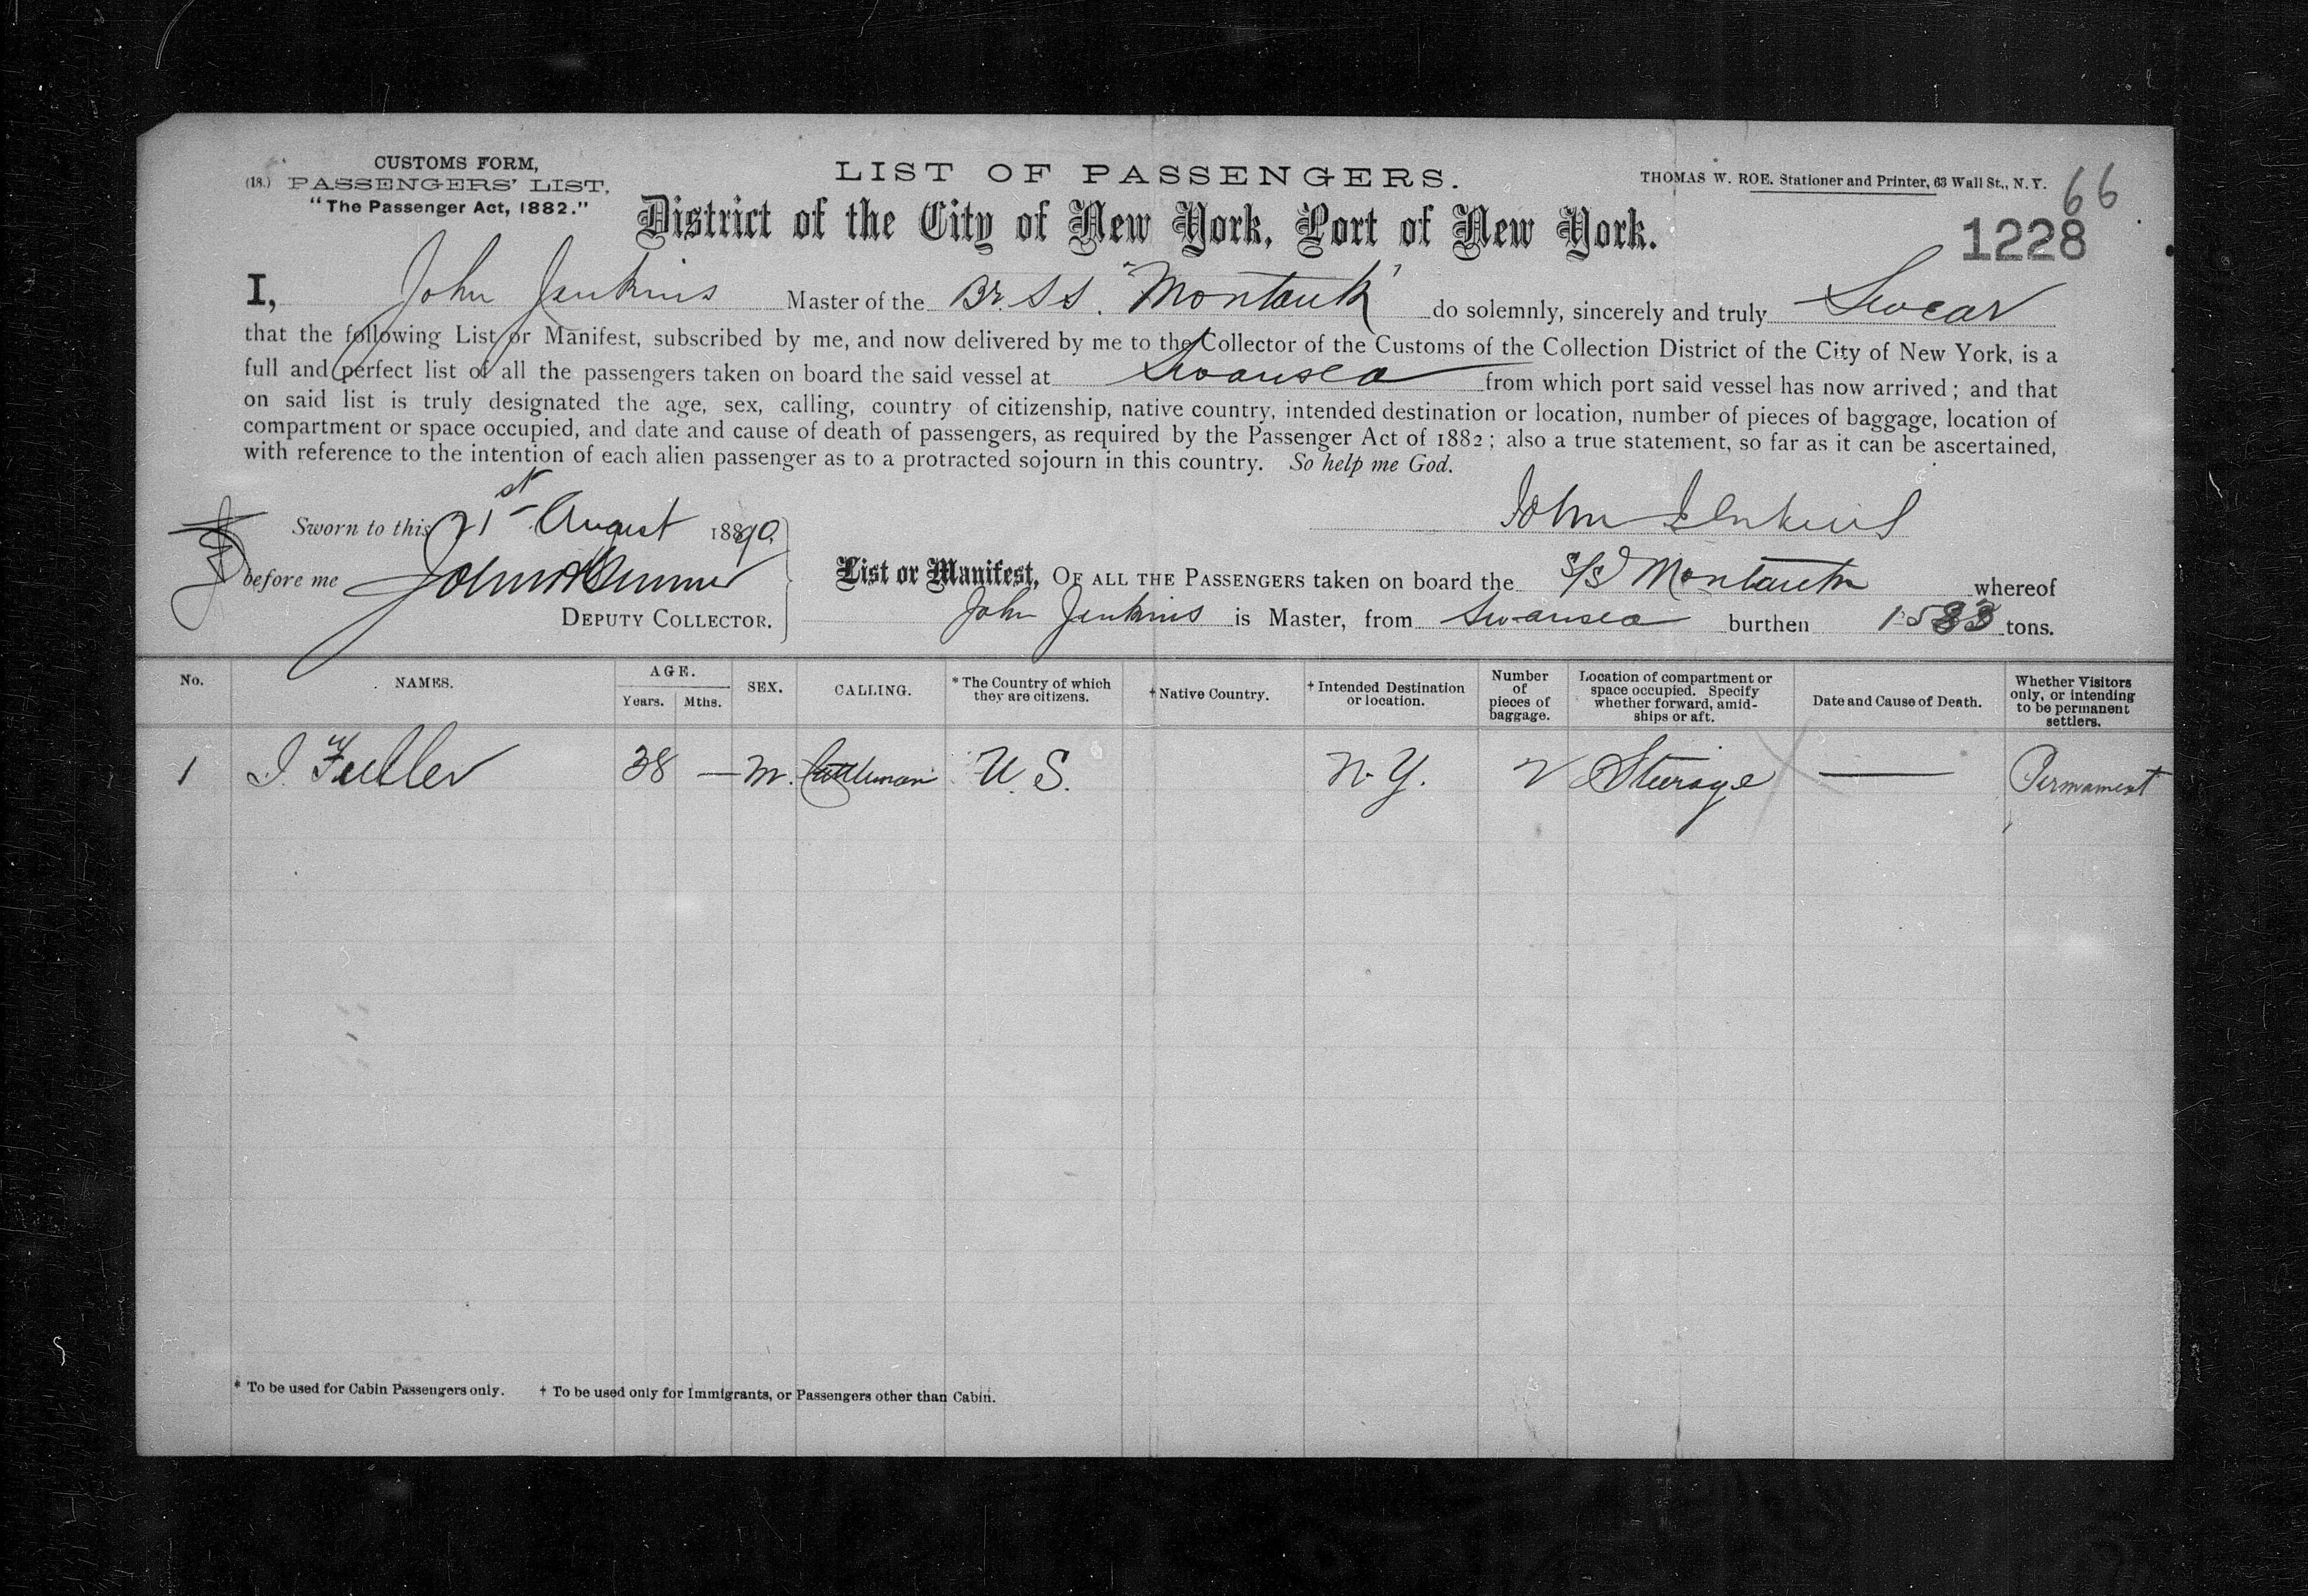 CUSTOMS FORM,
(18.) PASSENGERS' LIST,
"The Passenger Act, 1882."
LIST OF PASSENGERS.
THOMAS W. ROE, Stationer and Printer, 63 Wall St., N. Y.
66
District of the City of New York, Port of New York.
1228
I, John Jenkins Master of the Br. SS. "Montauk" do solemnly, sincerely and truly Swear
that the following List or Manifest, subscribed by me, and now delivered by me to the Collector of the Customs of the Collection District of the City of New York, is a
full and perfect list of all the passengers taken on board the said vessel at Swansea from which port said vessel has now arrived; and that
on said list is truly designated the age, sex, calling, country of citizenship, native country, intended destination or location, number of pieces of baggage, location of
compartment or space occupied, and date and cause of death of passengers, as required by the Passenger Act of 1882; also a true statement, so far as it can be ascertained,
with reference to the intention of each alien passenger as to a protracted sojourn in this country. So help me God.
Sworn to this 21st August 1890
John Jenkins
before me John
DEPUTY COLLECTOR.
List or Manifest, OF ALL THE PASSENGERS taken on board the S/S Montauk whereof
John Jenkins is Master, from Swansea burthen 1533 tons.
No. NAMES. AGE. Years. Mths. SEX. CALLING. * The Country of which they are citizens. † Native Country. † Intended Destination or location. Number of pieces of baggage. Location of compartment or space occupied. Specify whether forward, amidships or aft. Date and Cause of Death. Whether Visitors only, or intending to be permanent settlers.
1 I. Fuller 38 — M. Cattleman U. S. N. Y. Steerage — Permament
* To be used for Cabin Passengers only. † To be used only for Immigrants, or Passengers other than Cabin.